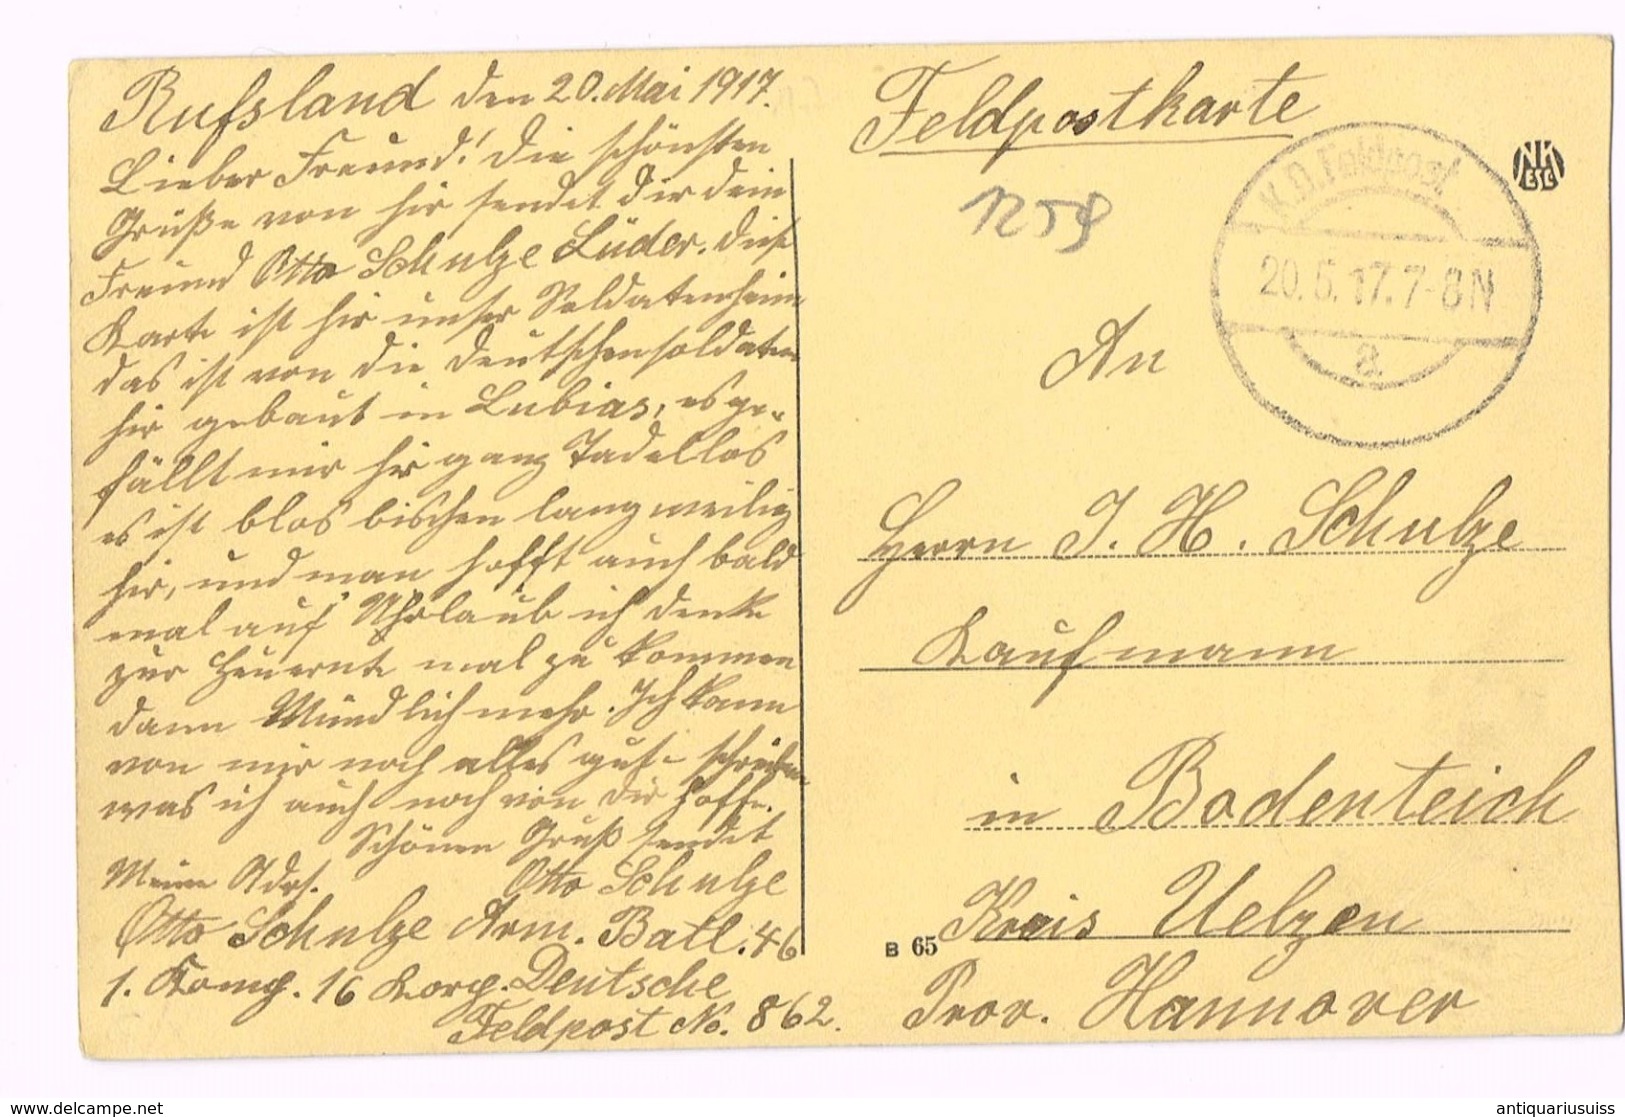 Rußland den 20. Mai 1917.
Lieber Freund! Die schönsten
Grüße von hir sendet dir dein
Freund Otto Schulze Lüder. Diese
Karte ist hir unser Soldatenheim
das ist von die deutschensoldaten
hir gebaut in Lubias, es ge-
fällt mir hir ganz Tadellos
es ist blos bischen langweilig
hir, und man hofft auch bald
mal auf Uhrlaub ich denke
zur Heuernte mal zu kommen
dann Mündlich mehr. Ich kann
von mir noch alles gute schreiben
was ich auch noch von dir hoffe.
Schönen Gruß sendet
Meine Adrs. Otto Schulze
Otto Schulze Arm. Batl. 46
1. Komp. 16 Korp. Deutsche
Feldpost No. 862.
Feldpostkarte
1259
K.D. Feldpost
20.5.17.7-8N
a
NK
ESC
An
Herrn J. H. Schulze
Kaufmann
in Bodenteich
Kreis Uelzen
B 65
Prov. Hannover
www.delcampe.net
antiquariusuiss